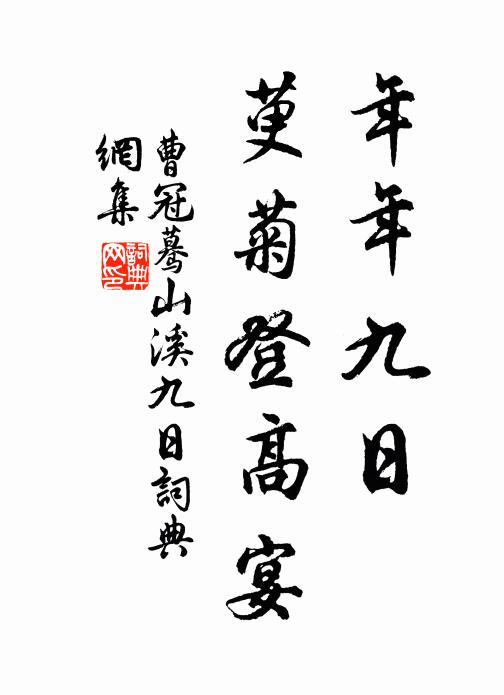 年年九日
萸菊登高宴
曹冠驀山溪九日詞典
網集
詞典
网印